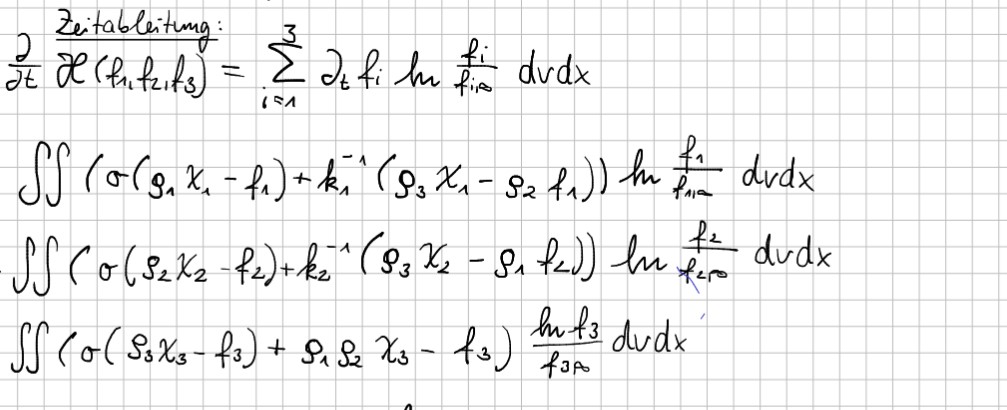 Zeitableitung:
∂/∂t ℋ(f₁,f₂,f₃) = ∑_{i=1}^{3} ∂ₜ fᵢ ln fᵢ/f_{i,∞} dvdx
∬ (σ(ρ₁χ₁ - f₁) + k₁⁻¹ (ρ₃χ₁ - ρ₂f₁)) ln f₁/f_{1,∞} dvdx
∬ (σ(ρ₂χ₂ - f₂) + k₂⁻¹ (ρ₃χ₂ - ρ₁f₂)) ln f₂/f_{2,∞} dvdx
∬ (σ(ρ₃χ₃ - f₃) + ρ₁ρ₂ χ₃ - f₃) ln f₃/f_{3∞} dvdx